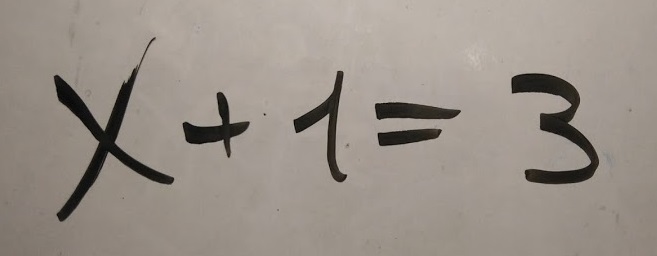 X + 1 = 3